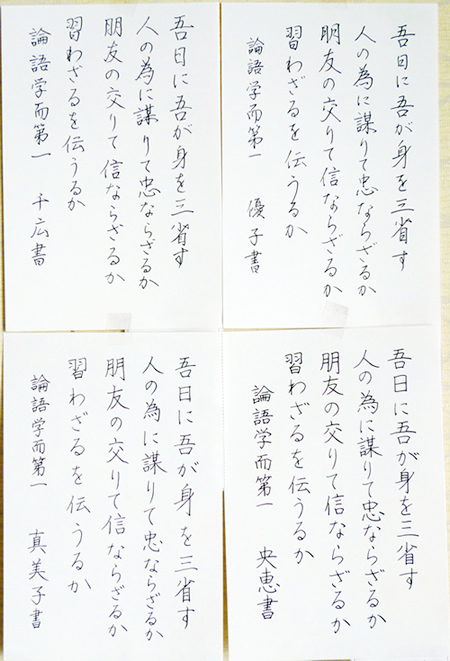 吾日に吾が身を三省す
人の為に謀りて忠ならざるか
朋友の交りて信ならざるか
習わざるを伝うるか
論語学而第一 優子書
吾日に吾が身を三省す
人の為に謀りて忠ならざるか
朋友の交りて信ならざるか
習わざるを伝うるか
論語学而第一 千広書
吾日に吾が身を三省す
人の為に謀りて忠ならざるか
朋友の交りて信ならざるか
習わざるを伝うるか
論語学而第一 央恵書
吾日に吾が身を三省す
人の為に謀りて忠ならざるか
朋友の交りて信ならざるか
習わざるを伝うるか
論語学而第一 真美子書